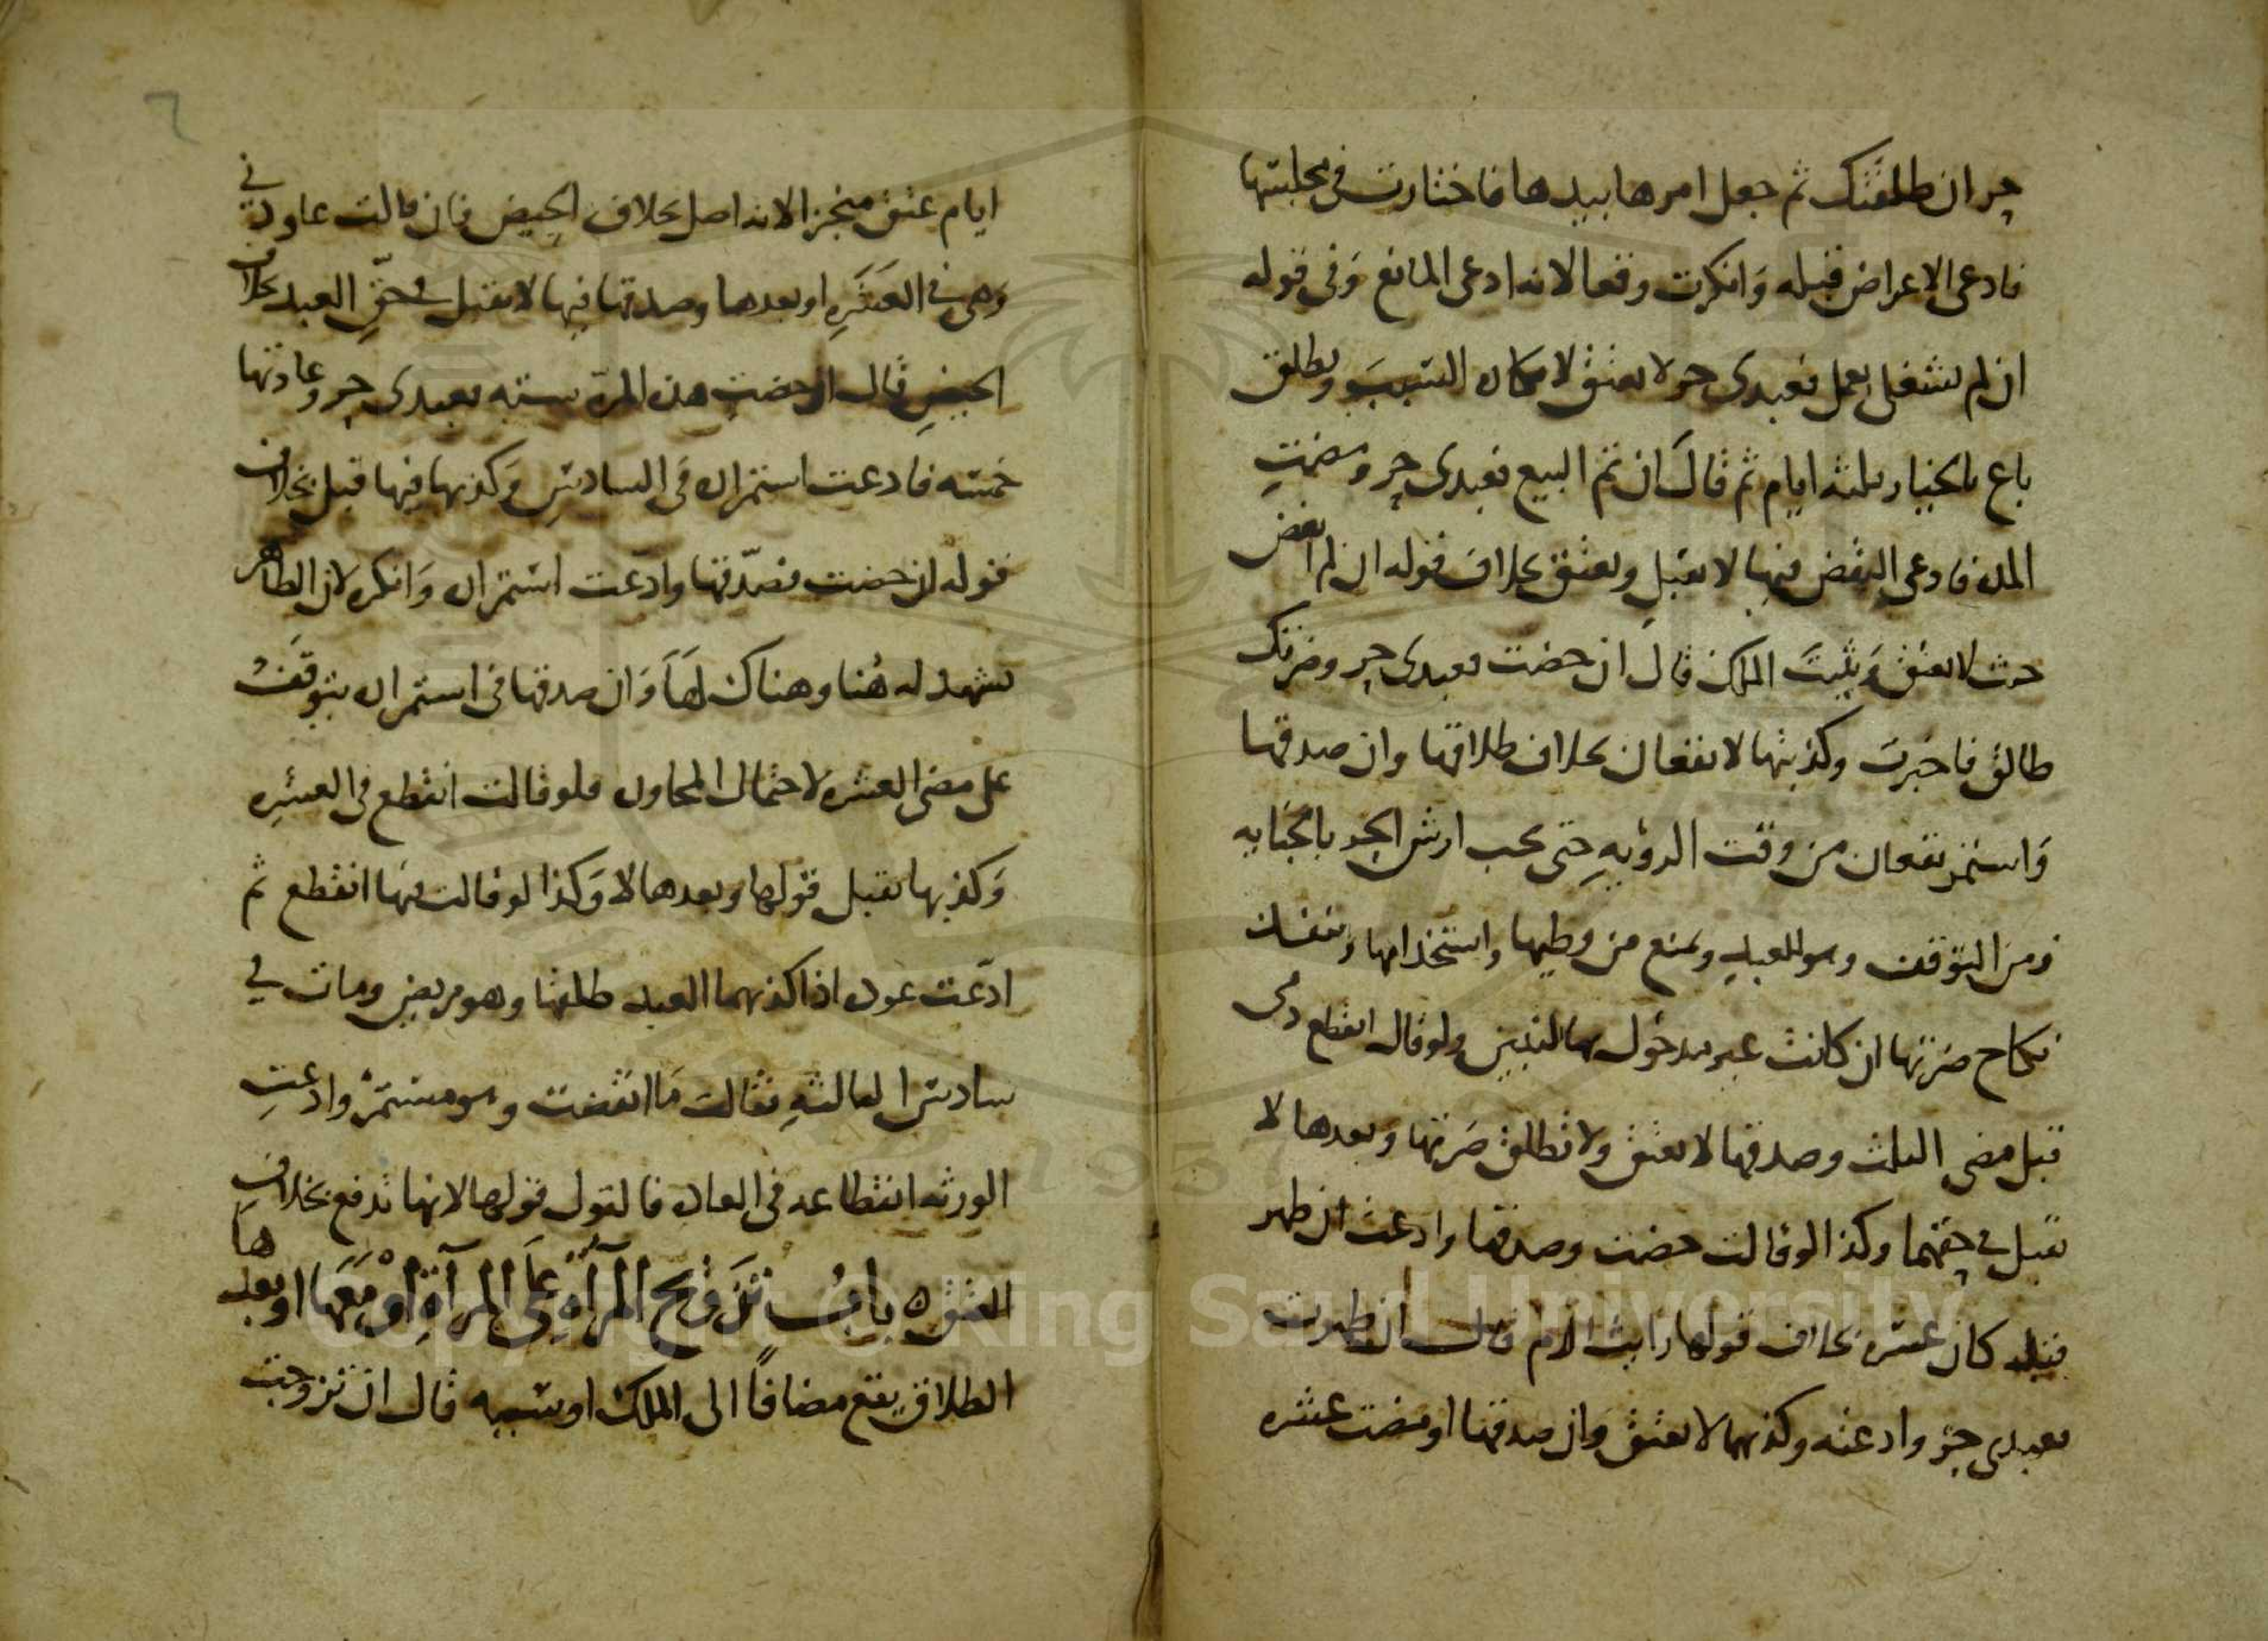 حر ان طلقتك ثم جعل امرها بيدها فاختارت في مجلسها
فادعى الاعراض قبله وانكرت وقعا لانه ادعى المانع وفي قوله
ان لم تشتغلي بعمل فعبدي حر لا يعتق لامكان التسبب ويطلق
باع بالخيار ثلثة ايام ثم قال ان تم البيع فعبدي حر ومضت
المدة فادعى النقض فيها لا يقبل ويعتق بخلاف قوله ان لم انقض
حيث لا يعتق ويثبت الملك قال ان حضت فعبدي حر وضرتك
طالق فاخبرت وكذبتها لا يقعان بخلاف طلاقها وان صدقها
واستمر يقعان من وقت الرؤية حتى يجب ارش الحر بالجناية
زمن التوقف وهو للعبد ويمنع من وطيها واستخدامها
نكاح ضرتها ان كانت غير مدخول بها للتبين ولو قال انقطع دمي
قبل مضي الثلث وصدقها لا يعتق ولا تطلق ضرتها وبعدها لا
يقبل في حقهما وكذا لو قالت حضت وصدقها وادعت ان طهر
قبله كان عشرة بخلاف قولها رايت الدم قال ان طهرت
فعبدي حر وادعته وكذبها لا يعتق وان صدقها او مضت عشرة
ايام عتق منجزا لانه اصل بخلاف الحيض فان قالت عاودني
وهي في العشرة او بعدها وصدقها فيها لا يقبل في حق العبد بخلاف
الحيض قال ان حضت هذه المرة ستة فعبدي حر وعادتها
خمسة فادعت استمراره في السادس وكذبها فيها قبل بخلاف
قوله ان حضت فصدقها وادعت استمراره وانكره لان الظاهر
يشهد له هنا وهناك لها وان صدقها في استمراره يتوقف
على مضي العشرة لاحتمال المجاوزه فلو قالت انقطع في العشرة
وكذبها يقبل قولها وبعدها لا وكذا لو قالت فيها انقطع ثم
ادعت عوده اذا كذبهما العبد طلقها وهو مريض ومات في
سادس الثالثة فقالت ما انقضت وهو مستمر وادعت
الورثة انقطاعه في العادة فالقول قولها لانها تدفع بخلاف
العتق ه باب تزويج المرأة على المرآة او معها او بعدها
الطلاق يقع مضافا الى الملك او سببه قال ان تزوجت
6
Copyright © King Saud University
1957